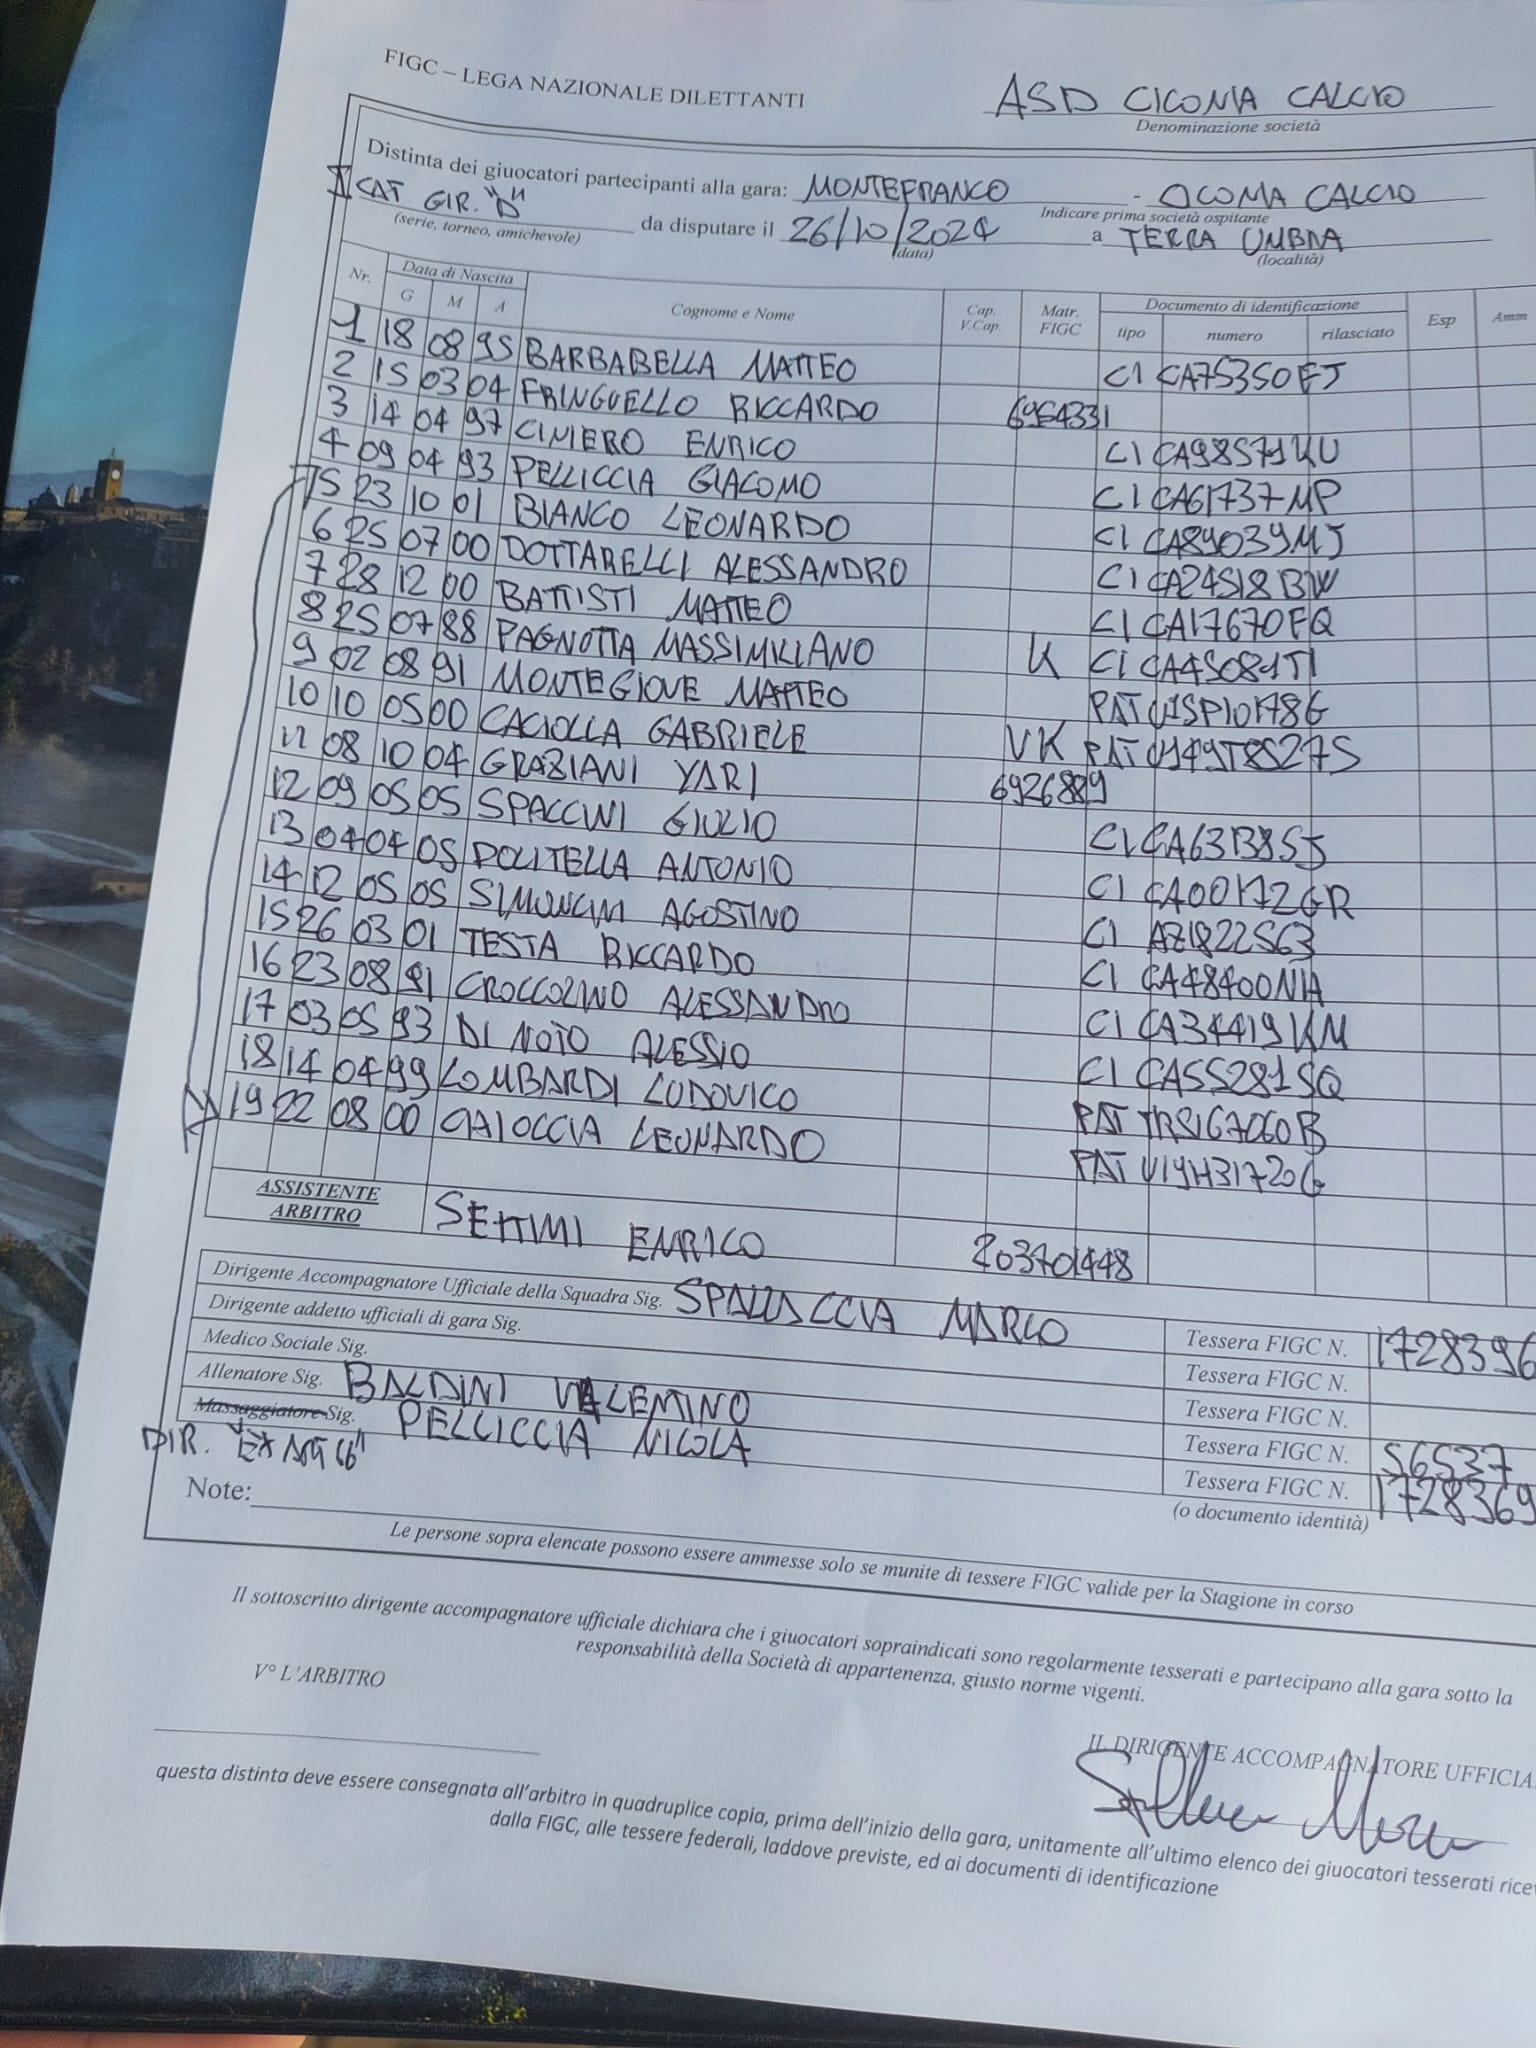 FIGC – LEGA NAZIONALE DILETTANTI
ASD CICONIA CALCIO
Denominazione società
Distinta dei giuocatori partecipanti alla gara: MONTEFRANCO - CICONIA CALCIO
Indicare prima società ospitante
I CAT GIR. "D" da disputare il 26/10/2024 a TERRA UMBRA
(serie, torneo, amichevole) (data) (località)
Nr. Data di Nascita Cognome e Nome Cap. V.Cap. Matr. FIGC Documento di identificazione Esp Amm
G M A tipo numero rilasciato
1 18 08 95 BARBABELLA MATTEO CI CA75350EJ
2 15 03 04 FRINGUELLO RICCARDO 6964331
3 14 04 97 CINIERO ENRICO CI CA98571KU
4 09 04 93 PELLICCIA GIACOMO CI CA61737MP
5 23 10 01 BIANCO LEONARDO CI CA89039MJ
6 25 07 00 DOTTARELLI ALESSANDRO CI CA24518BW
7 28 12 00 BATTISTI MATTEO CI CA17670FQ
8 25 07 88 PAGNOTTA MASSIMILIANO K CI CA45081TI
9 02 08 91 MONTEGIOVE MATTEO PAT U1SP101786
10 10 05 00 CACIOLLA GABRIELE VK PAT
11 08 10 04 GRAZIANI YARI 6926889
12 09 05 05 SPACCINI GIULIO CI
13 04 04 05 POLITELLA ANTONIO CI CA00172GR
14 12 05 05 SIMONCINI AGOSTINO CI AZ1822563
15 26 03 01 TESTA RICCARDO CI CA48400NA
16 23 08 91 CROCCOLINO ALESSANDRO CI CA34419KM
17 03 05 93 DI NOTO ALESSIO CI CA55281SQ
18 14 04 99 LOMBARDI LUDOVICO PAT
19 22 08 00 CAIOCCIA LEONARDO PAT U19H31720G
ASSISTENTE ARBITRO SETTIMI ENRICO 203701448
Dirigente Accompagnatore Ufficiale della Squadra Sig. SPALLACCIA MARCO Tessera FIGC N. 1728396
Dirigente addetto ufficiali di gara Sig. Tessera FIGC N.
Medico Sociale Sig. Tessera FIGC N.
Allenatore Sig. BALDINI VALENTINO Tessera FIGC N. 56537
Massaggiatore Sig. PELLICCIA NICOLA Tessera FIGC N. 1728369
DIR.
(o documento identità)
Note:
Le persone sopra elencate possono essere ammesse solo se munite di tessere FIGC valide per la Stagione in corso
Il sottoscritto dirigente accompagnatore ufficiale dichiara che i giuocatori sopraindicati sono regolarmente tesserati e partecipano alla gara sotto la
responsabilità della Società di appartenenza, giusto norme vigenti.
V° L'ARBITRO
IL DIRIGENTE ACCOMPAGNATORE UFFICIA
questa distinta deve essere consegnata all'arbitro in quadruplice copia, prima dell'inizio della gara, unitamente all'ultimo elenco dei giuocatori tesserati rice
dalla FIGC, alle tessere federali, laddove previste, ed ai documenti di identificazione